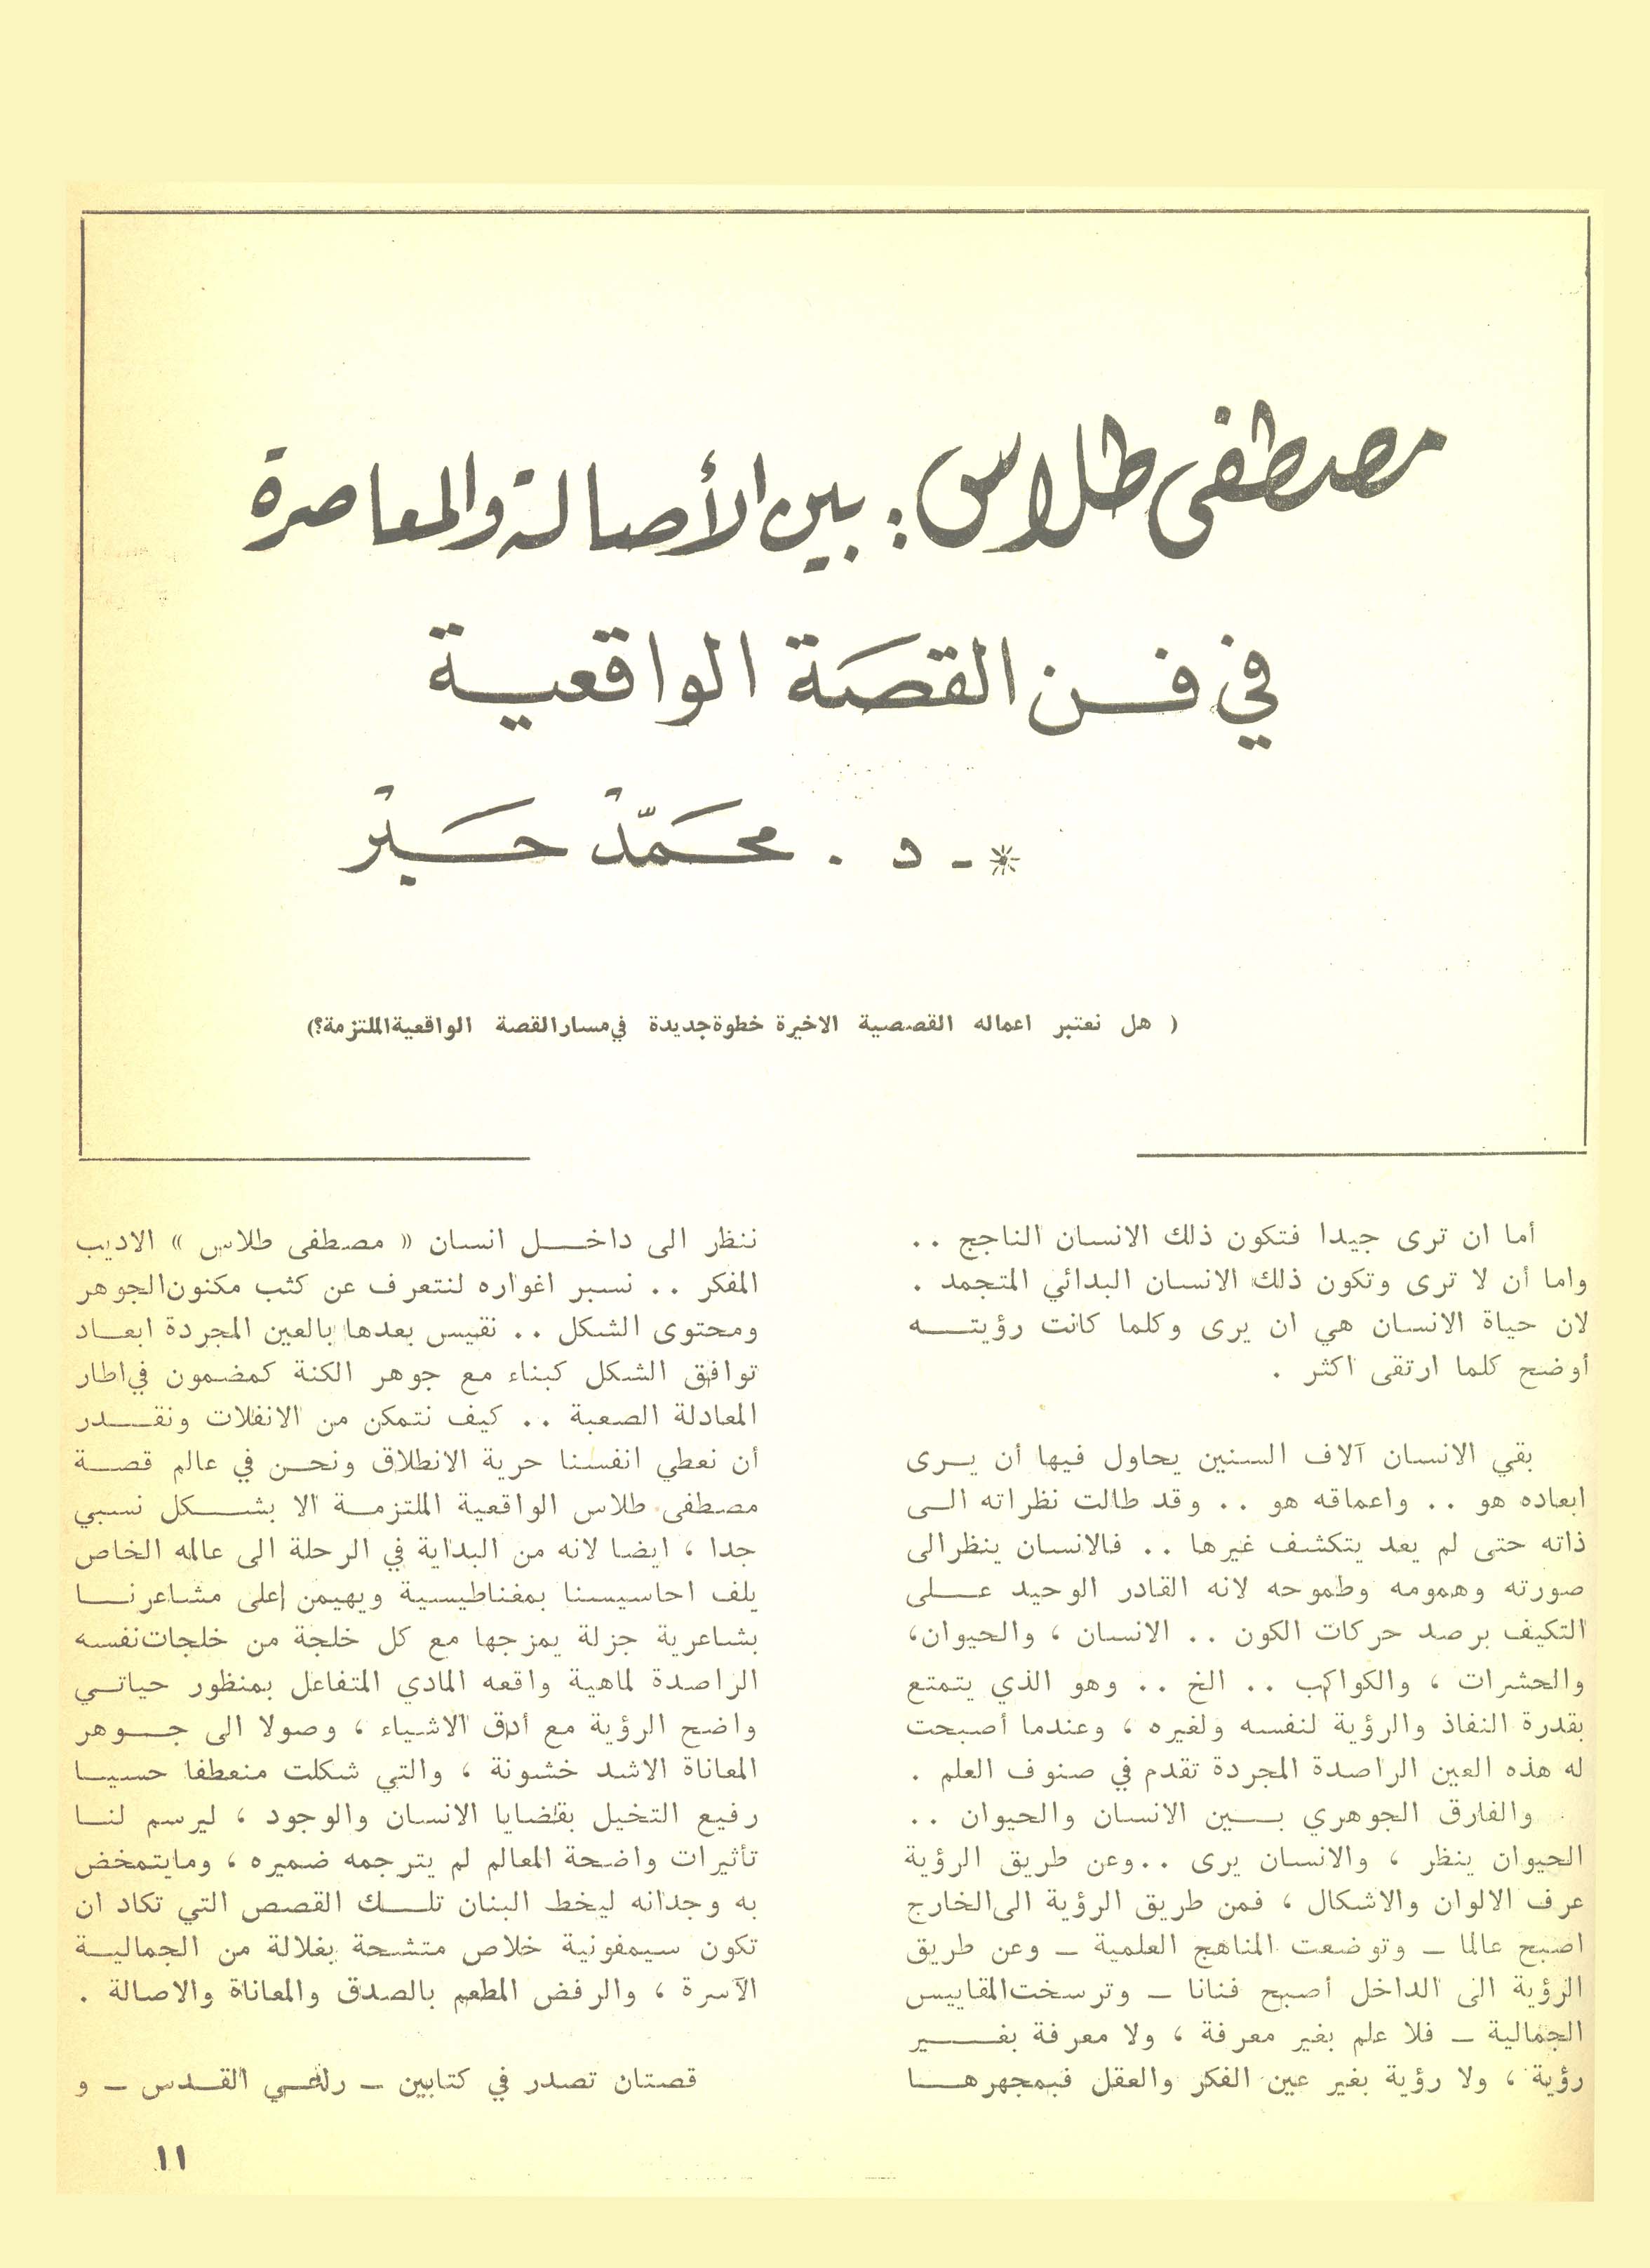 مصطفى طلاس : بين الأصالة والمعاصرة
في فن القصة الواقعية
* - د . محمد
( هل نعتبر اعماله القصصية الاخيرة خطوة جديدة في مسار القصة الواقعية الملتزمة؟)
أما ان ترى جيدا فتكون ذلك الانسان الناجح . .
واما أن لا ترى وتكون ذلك الانسان البدائي المتجمد .
لان حياة الانسان هي ان يرى وكلما كانت رؤيته
أوضح كلما ارتقى اكثر .
بقي الانسان آلاف السنين يحاول فيها أن يرى
ابعاده هو . . واعماقه هو . . وقد طالت نظراته الى
ذاته حتى لم يعد يتكشف غيرها . . فالانسان ينظر الى
صورته وهمومه وطموحه لانه القادر الوحيد على
التكيف برصد حركات الكون . . الانسان ، والحيوان،
والحشرات ، والكواكب . . الخ . . وهو الذي يتمتع
بقدرة النفاذ والرؤية لنفسه ولغيره ، وعندما أصبحت
له هذه العين الراصدة المجردة تقدم في صنوف العلم .
والفارق الجوهري بين الانسان والحيوان . .
الحيوان ينظر ، والانسان يرى . . وعن طريق الرؤية
عرف الالوان والاشكال ، فمن طريق الرؤية الى الخارج
اصبح عالما - وتوضعت المناهج العلمية - وعن طريق
الرؤية الى الداخل أصبح فنانا - وترسخت المقاييس
الجمالية - فلا علم بغير معرفة ، ولا معرفة بغير
رؤية ، ولا رؤية بغير عين الفكر والعقل فبمجهرها
ننظر الى داخل انسان « مصطفى طلاس » الاديب
المفكر . . نسبر اغواره لنتعرف عن كثب مكنون الجوهر
ومحتوى الشكل . . نقيس بعدها بالعين المجردة ابعاد
توافق الشكل كبناء مع جوهر الكنة كمضمون في اطار
المعادلة الصعبة . . كيف نتمكن من الانفلات ونقدر
أن نعطي انفسنا حرية الانطلاق ونحن في عالم قصة
مصطفى طلاس الواقعية الملتزمة الا بشكل نسبي
جدا ، ايضا لانه من البداية في الرحلة الى عالمه الخاص
يلف احاسيسنا بمغناطيسية ويهيمن على مشاعرنا
بشاعرية جزلة يمزجها مع كل خلجة من خلجات نفسه
الراصدة لماهية واقعه المادي المتفاعل بمنظور حياتي
واضح الرؤية مع أدق الاشياء ، وصولا الى جوهر
المعاناة الاشد خشونة ، والتي شكلت منعطفا حسيا
رفيع التخيل بقضايا الانسان والوجود ، ليرسم لنا
تأثيرات واضحة المعالم لم يترجمه ضميره ، وما يتمخض
به وجدانه ليخط البنان تلك القصص التي تكاد ان
تكون سيمفونية خلاص متشحة بغلالة من الجمالية
الآسرة ، والرفض المطعم بالصدق والمعاناة والاصالة .
قصتان تصدر في كتابين - القدس - و
١١